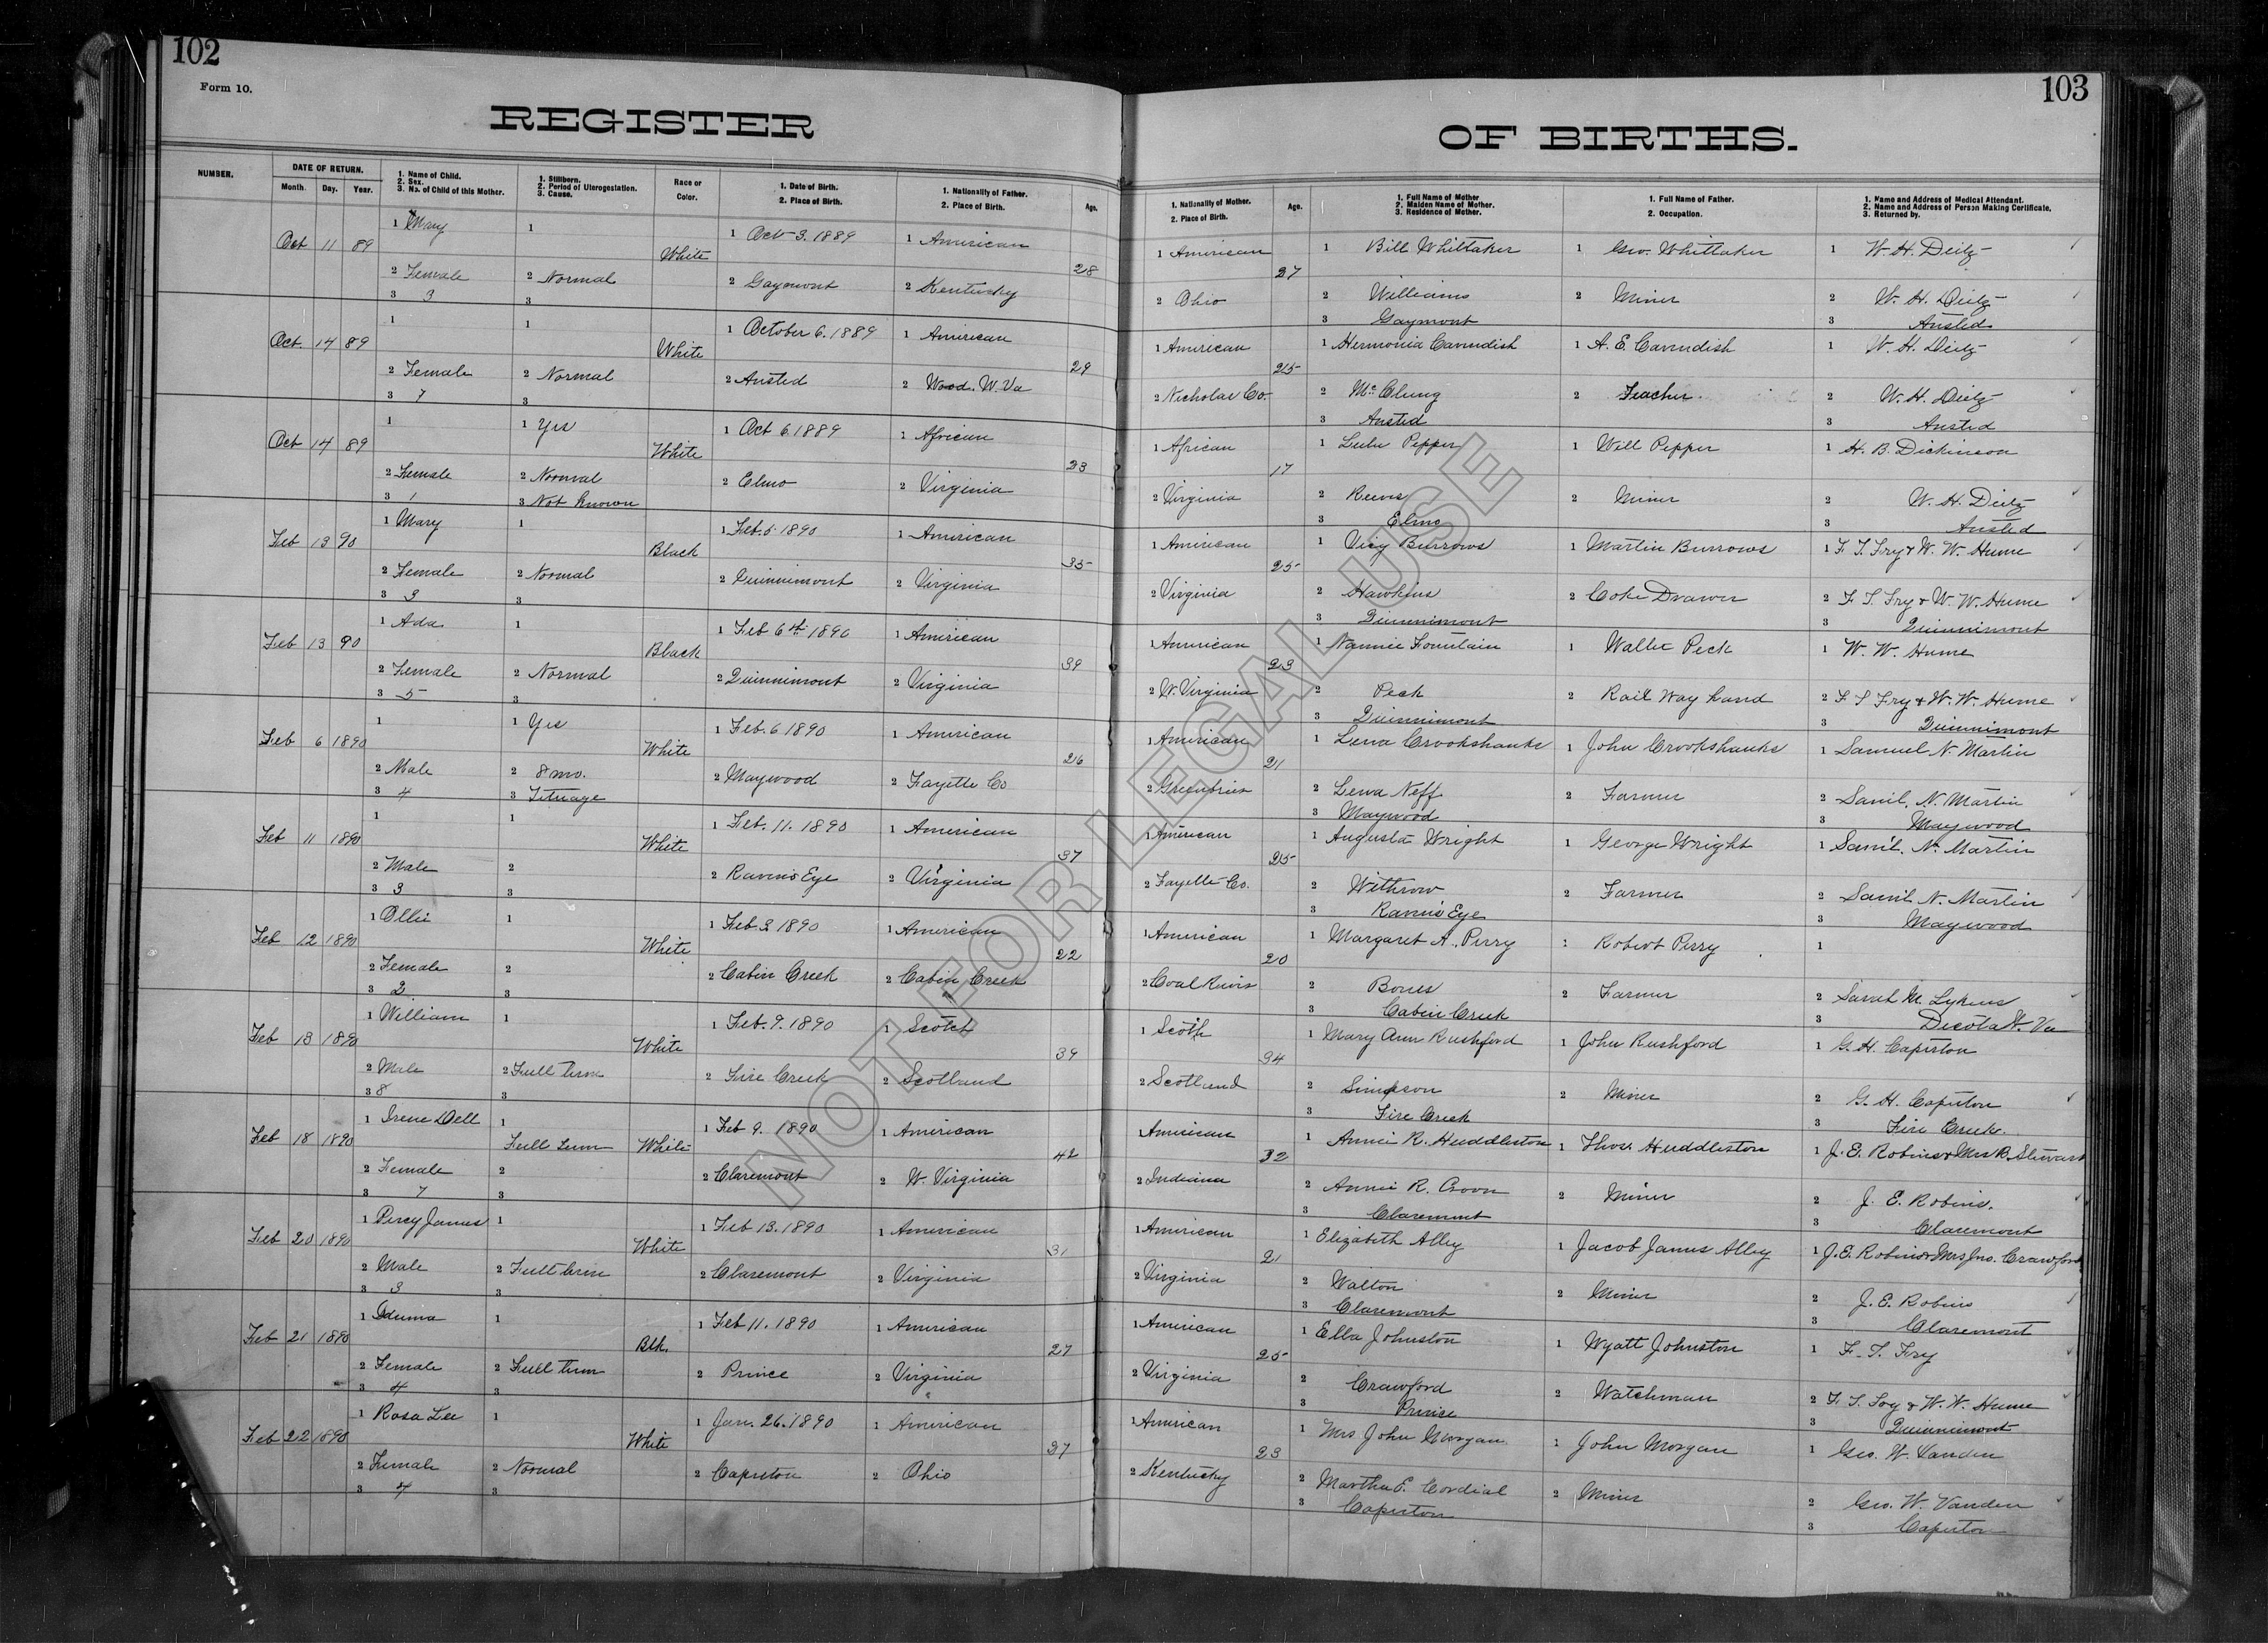 102
103
Form 10.
REGISTER OF BIRTHS.
NUMBER.
DATE OF RETURN.
Month. Day. Year.
1. Name of Child.
2. Sex.
3. No. of Child of this Mother.
1. Stillborn.
2. Period of Uterogestation.
3. Cause.
Race or Color.
1. Date of Birth.
2. Place of Birth.
1. Nationality of Father.
2. Place of Birth.
Age.
1. Nationality of Mother.
2. Place of Birth.
Age.
1. Full Name of Mother
2. Maiden Name of Mother.
3. Residence of Mother.
1. Full Name of Father.
2. Occupation.
1. Name and Address of Medical Attendant.
2. Name and Address of Person Making Certificate.
3. Returned by.
1 Mary 1 1 Oct 3. 1889 1 American 1 American 1 Bill Whittaker 1 Geo. Whittaker 1 W. H. Deitz
Oct 11 89 White 28 27
2 Female 2 Normal 2 Gaymont 2 Kentucky 2 Ohio 2 Williams 2 Miner 2 W. H. Deitz
3 3 3 3 Gaymont 3 Ansted
1 1 1 October 6. 1889 1 American 1 American 1 Hermonia Cavendish 1 A. E. Cavendish 1 W. H. Deitz
Oct. 14 89 White 29 25
2 Female 2 Normal 2 Ansted 2 Wood. W. Va 2 Nicholas Co. 2 McClung 2 Teacher 2 W. H. Deitz
3 7 3 3 Ansted 3 Ansted
1 1 Yes 1 Oct 6. 1889 1 African 1 African 1 Lulu Pepper 1 Will Pepper 1 H. B. Dickinson
Oct 14 89 White 23 17
2 Female 2 Normal 2 Elmo 2 Virginia 2 Virginia 2 Reeves 2 Miner 2 W. H. Deitz
3 1 3 Not known 3 Elmo 3 Ansted
1 Mary 1 1 Feb. 5 1890 1 American 1 American 1 Vicy Burrows 1 Martin Burrows 1 F. T. Fry & W. W. Hume
Feb 13 90 Black 35 25
2 Female 2 Normal 2 Quinnimont 2 Virginia 2 Virginia 2 Hawkins 2 Coke Drawer 2 F. T. Fry & W. W. Hume
3 3 3 3 Quinnimont 3 Quinnimont
1 Ada 1 1 Feb 6th 1890 1 American 1 American 1 Nannie Fountain 1 Walter Peck 1 W. W. Hume
Feb 13 90 Black 39 23
2 Female 2 Normal 2 Quinnimont 2 Virginia 2 W. Virginia 2 Peck 2 Rail Way hand 2 F. T. Fry & W. W. Hume
3 5 3 3 Quinnimont 3 Quinnimont
1 1 Yes 1 Feb. 6 1890 1 American 1 American 1 Lena Crookshanks 1 John Crookshanks 1 Samuel N. Martin
Feb 6 1890 White 26 21
2 Male 2 8 mo. 2 Maywood 2 Fayette Co 2 Greenbrier 2 Lena Neff 2 Farmer 2 Saml. N. Martin
3 4 3 3 Maywood 3 Maywood
1 1 1 Feb. 11. 1890 1 American 1 American 1 Augusta Wright 1 George Wright 1 Saml. N. Martin
Feb 11 1890 White 37 25
2 Male 2 2 Ravens Eye 2 Virginia 2 Fayette Co. 2 Withrow 2 Farmer 2 Saml N. Martin
3 3 3 3 Ravens Eye 3 Maywood
1 Ollie 1 1 Feb. 3 1890 1 American 1 American 1 Margaret A. Perry 1 Robert Perry 1
Feb 12 1890 White 22 20
2 Female 2 2 Cabin Creek 2 Cabin Creek 2 Coal River 2 Bones 2 Farmer 2 Sarah M. Lykens
3 2 3 3 Cabin Creek 3 Decota W. Va
1 William 1 1 Feb. 9. 1890 1 Scotch 1 Scotch 1 Mary Ann Rushford 1 John Rushford 1 G. H. Caperton
Feb 13 1890 White 39 34
2 Male 2 Full term 2 Fire Creek 2 Scotland 2 Scotland 2 Simpson 2 Miner 2 G. H. Caperton
3 8 3 3 Fire Creek 3 Fire Creek.
1 Irene Dell 1 1 Feb 9. 1890 1 American American 1 Annie R. Huddleston 1 Thos. Huddleston 1 J. E. Robins & Mrs R. Stewart
Feb 18 1890 Full term White 42 32
2 Female 2 2 Claremont 2 W. Virginia 2 Indiana 2 Annie R. 2 Miner 2 J. E. Robins.
3 7 3 3 Claremont 3 Claremont
1 Percy James 1 1 Feb 13. 1890 1 American 1 American 1 Elizabeth Alley 1 Jacob James Alley 1 J. E. Robins & Mrs Jno. Crawford
Feb 20 1890 White 31 21
2 Male 2 Full term 2 Claremont 2 Virginia 2 Virginia 2 Walton 2 Miner 2 J. E. Robins
3 3 3 3 Claremont 3 Claremont
1 1 1 Feb 11. 1890 1 American 1 American 1 Ella Johnston 1 Wyatt Johnston 1 F. T. Fry
Feb 21 1890 Blk. 27 25
2 Female 2 Full term 2 Prince 2 Virginia 2 Virginia 2 Crawford 2 Watchman 2 F. T. Fry & W. W. Hume
3 4 3 3 Prince 3 Quinnimont
1 Rosa Lee 1 1 Jan. 26. 1890 1 American 1 American 1 Mrs John Morgan 1 John Morgan 1 Geo. W. Vanden
Feb 22 1890 White 37 23
2 Female 2 Normal 2 Caperton 2 Ohio 2 Kentucky 2 Martha E. Cordial 2 Miner 2 Geo. W. Vanden
3 4 3 3 Caperton 3 Caperton
NOT FOR LEGAL USE